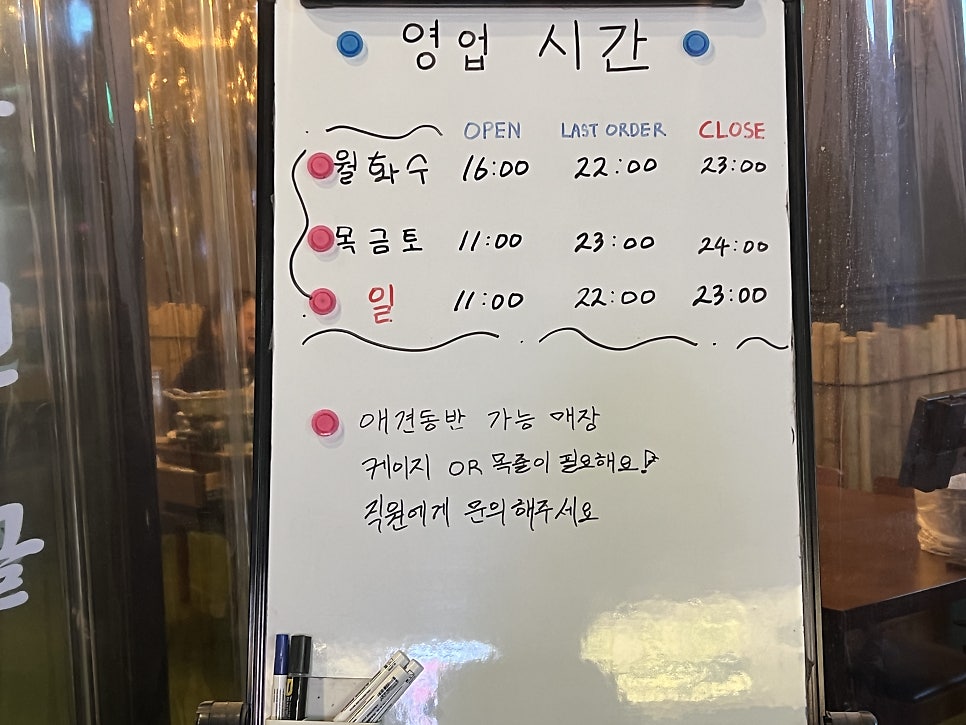 영업 시간
OPEN LAST ORDER CLOSE
월 화 수 16:00 22:00 23:00
목 금 토 11:00 23:00 24:00
일 11:00 22:00 23:00
애견동반 가능 매장
케이지 OR 목줄이 필요해요!
직원에게 문의해주세요